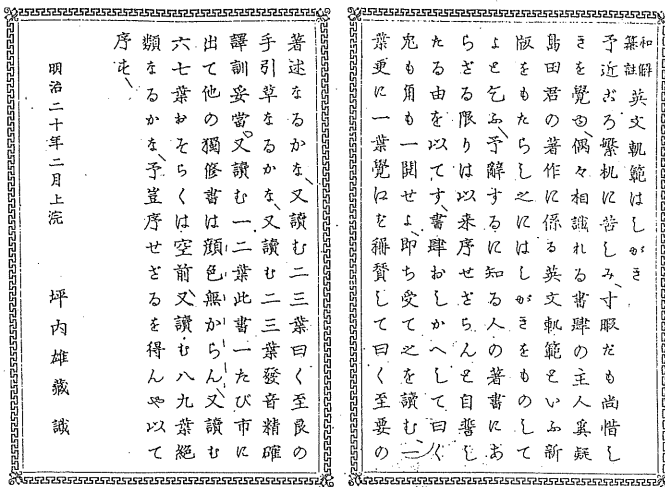 和解纂註英文軌範はしがき
予近ごろ繁机に苦しみ寸暇だも尚惜し
きを覺ゆ偶々相識れる書肆の主人奚疑
島田君の著作に係る英文軌範といふ新
版をもたらし之にはしがきをものして
よと乞ふ予辭するに知る人の著書にあ
らざる限りは以来序せざらんと自誓し
たる由を以てす書肆おしかへして曰く
兎も角も一閲せよ即ち受て之を讀む一
葉更に一葉覺口を稱賛して曰く至要の
著述なるかな又讀む二三葉曰く至良の
手引草なるかな又讀む二三葉發音精確
譯訓妥當又讀む一二葉此書一たび市に
出て他の獨修書は顔色無からん又讀む
六七葉おそらくは空前又讀む八九葉絶
類なるかな予豈序せざるを得んや以て
序す
明治二十年二月上浣
坪内雄藏識